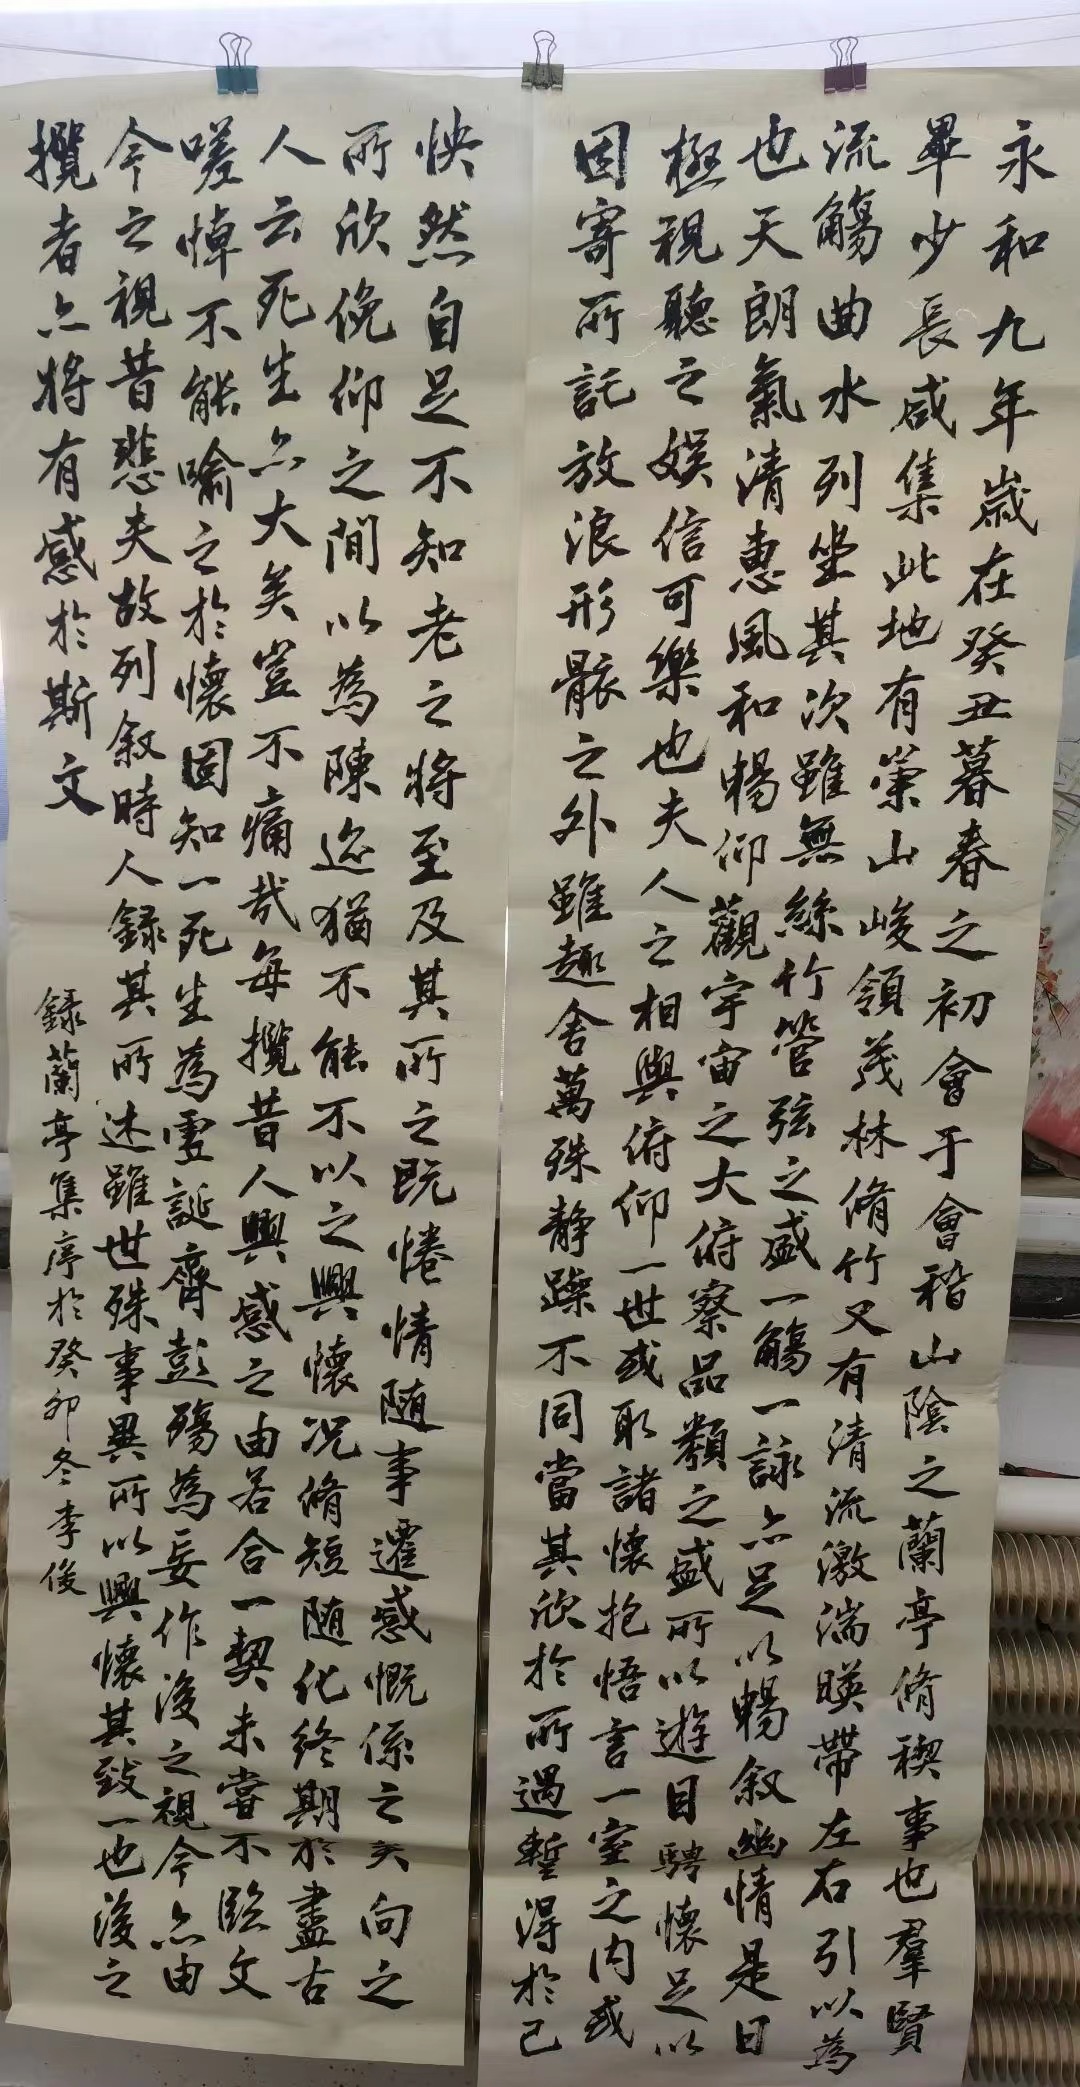 永和九年歲在癸丑暮春之初會于會稽山陰之蘭亭脩稧事也羣賢
畢少長咸集此地有崇山峻領茂林脩竹又有清流激湍暎帶左右引以為
流觴曲水列坐其次雖無絲竹管弦之盛一觴一詠亦足以暢叙幽情是日
也天朗氣清惠風和暢仰觀宇宙之大俯察品類之盛所以遊目騁懷足以
極視聽之娱信可樂也夫人之相與俯仰一世或取諸懷抱悟言一室之内或
因寄所託放浪形骸之外雖趣舍萬殊静躁不同當其欣於所遇蹔得於己
怏然自足不知老之将至及其所之既惓情随事遷感慨係之矣向之
所欣俛仰之閒以為陳迹猶不能不以之興懷况脩短随化終期於盡古
人云死生亦大矣豈不痛哉每攬昔人興感之由若合一契未嘗不臨文
嗟悼不能喻之於懷固知一死生為虚誕齊彭殤為妄作後之視今亦由
今之視昔悲夫故列叙時人録其所述雖世殊事異所以興懷其致一也後之
攬者亦将有感於斯文
録蘭亭集序於癸卯冬李俊